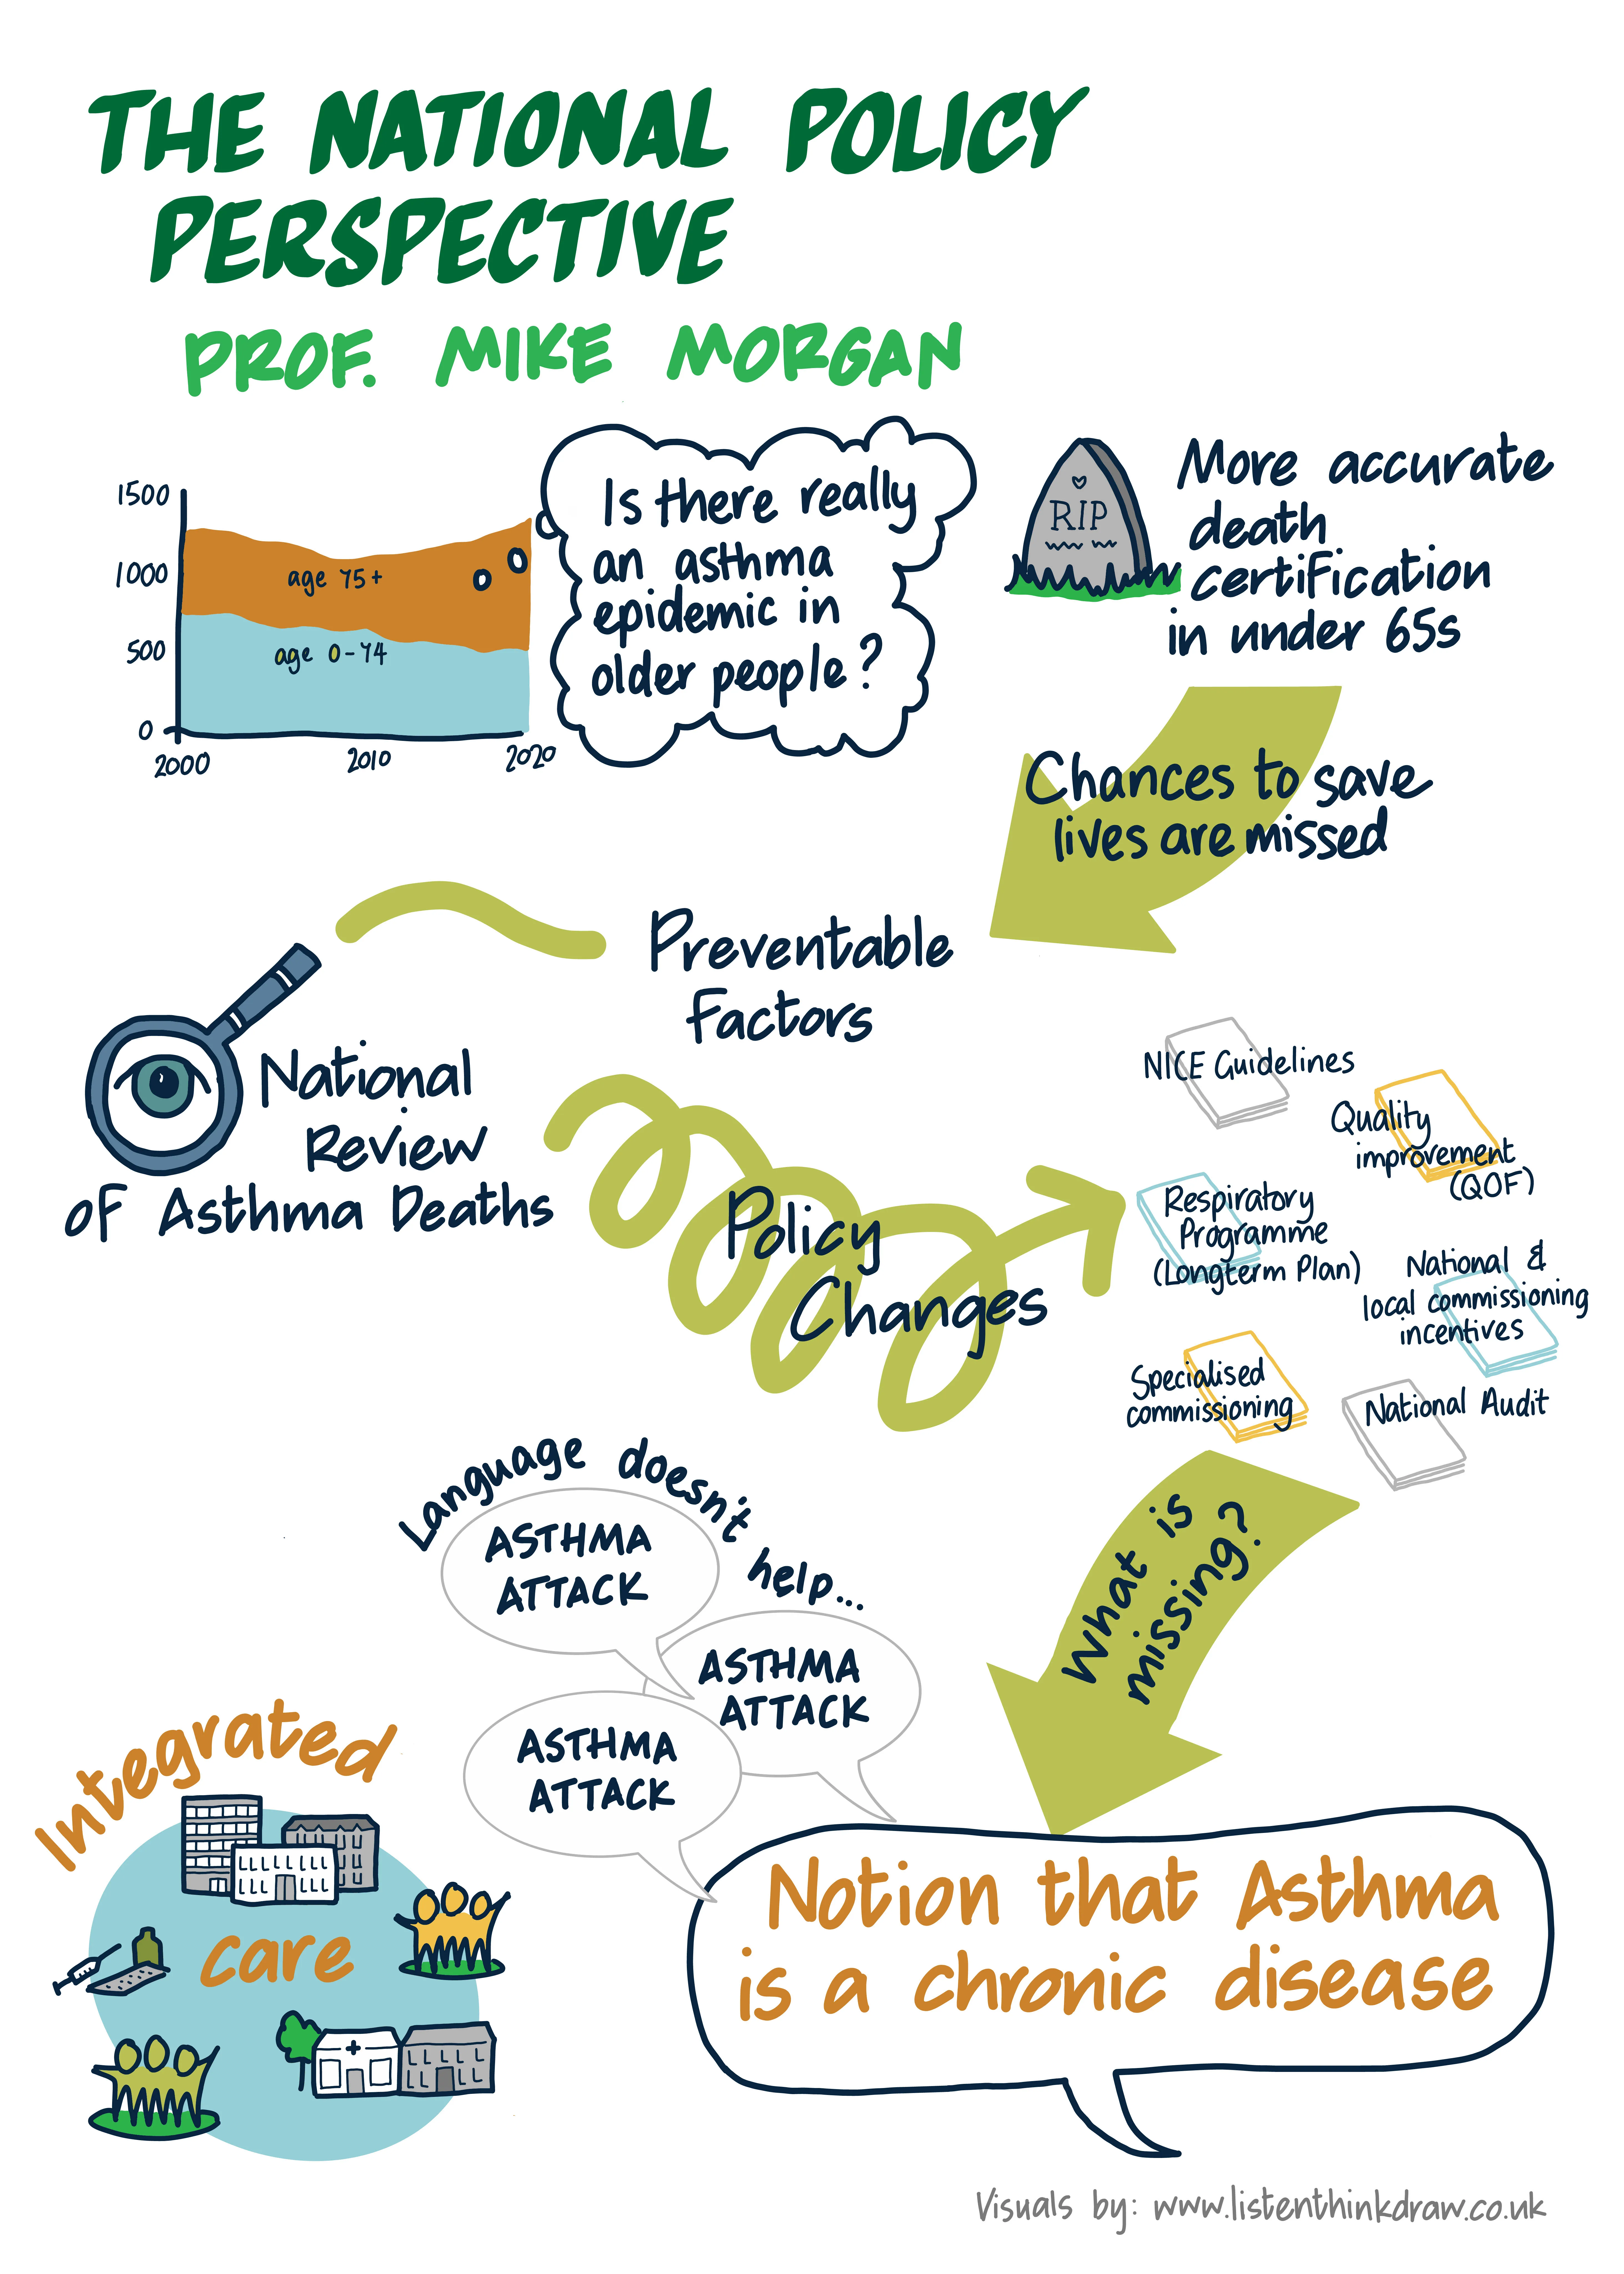 THE NATIONAL POLICY
PERSPECTIVE
PROF. MIKE MORGAN
1500
1000
500
0
age 75+
age 0-74
2000
2010
2020
Is there really
an asthma
epidemic in
older people?
RIP
More accurate
death
certification
in under 65s
Chances to save
lives are missed
Preventable
Factors
National
Review
of Asthma Deaths
Policy
Changes
NICE Guidelines
Quality
improvement
(QOF)
Respiratory
Programme
(Longterm Plan)
National &
local commissioning
incentives
Specialised
commissioning
National Audit
What is
missing?
Language doesn't help...
ASTHMA
ATTACK
ASTHMA
ATTACK
ASTHMA
ATTACK
Integrated
care
Notion that Asthma
is a chronic disease
Visuals by: www.listenthinkdraw.co.uk